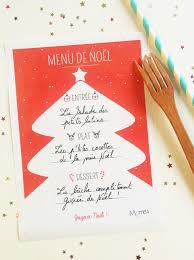 MENU DE NOËL
ENTRÉE
La Salade des
petits lutins
PLAT
Les p'tites cocottes
de la mère Noël
DESSERT
La bûche complètement
givrée de Noël !
Joyeux Noël !
Momes